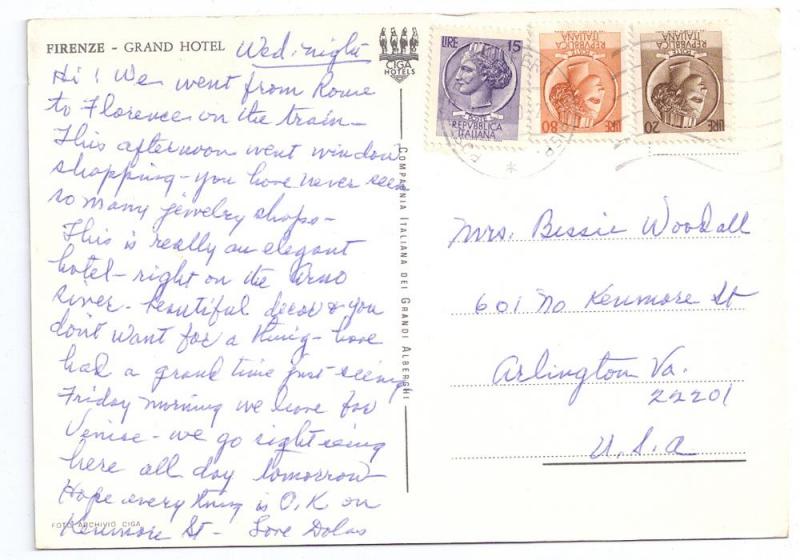 FIRENZE - GRAND HOTEL
Wed. night
Hi! We went from Rome
to Florence on the train -
This afternoon went window
shopping - you have never seen
so many jewelry shops -
This is really an elegant
hotel - right on the Arno
River - beautiful decor & you
don't want for a thing - have
had a grand time just seeing
Friday morning we leave for
Venise - we go sightseeing
here all day tomorrow
Hope every thing is O.K on
Kenmore St - Love
FOTO ARCHIVIO CIGA
CIGA
HOTELS
COMPAGNIA ITALIANA DEI GRANDI ALBERGHI
LIRE 15
REPVBBLICA
ITALIANA
LIRE 80
REPVBBLICA
ITALIANA
LIRE 20
REPVBBLICA
ITALIANA
Mrs. Bessie Woodall
601 No Kenmore St
Arlington Va.
22201
U.S.A